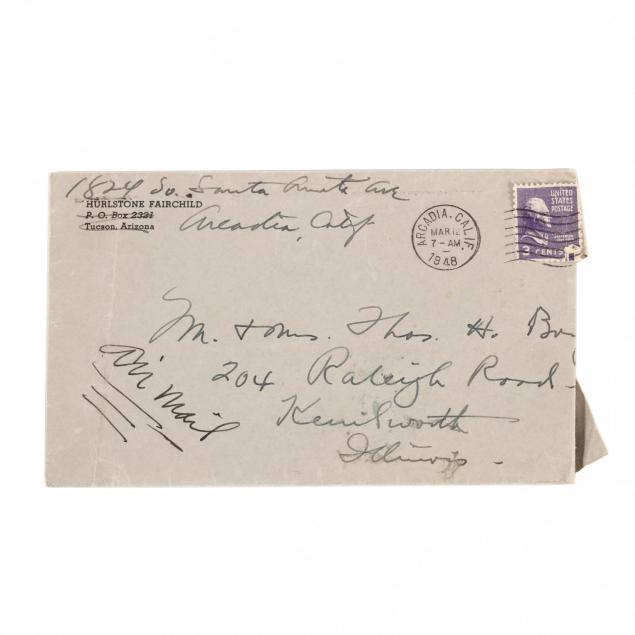 1824 So. Santa Anita Ave
HURLSTONE FAIRCHILD
P. O. Box 2321
Tucson, Arizona
Arcadia, Calif
ARCADIA, CALIF.
MAR 12
7 - AM
1948
UNITED
STATES
POSTAGE
3 CENTS
M. & Mrs. Thos. H. Bo
204 Raleigh Road
Kenilworth
Illinois -
Air Mail